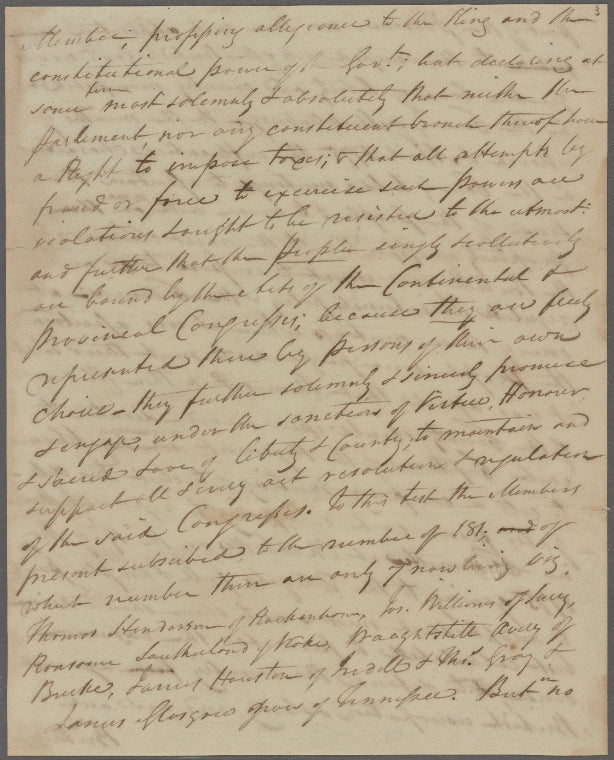 3
Members, professing allegiance to the King and the
constitutional power of Govt.; but declaring at
same time most solemnly & absolutely that neither the
Parlement, nor any constituent branch thereof have
a Right to impose taxes; & that all attempts by
fraud or force to exercise such Powers are
violations & ought to be resisted to the utmost:
and further that the People singly & collectively
are bound by the Acts of the Continental &
Provincial Congresses; because they are freely
represented there by persons of their own
choice – They further solemnly & sincerely promise
& engage, under the sanction of Virtue, Honour,
& sacred Love of Liberty & Country, to maintain and
support all & every act resolution & regulation
of the said Congresses. To this test the Members
present subscribed to the number of 181, and of
which number there are only of now living viz.
Thomas Henderson of Rockenham, Jos. Williams of Surry,
Ransome Southerland of Wake, Waaghtstill Avery of
Burke, James Houston of Iredell & Ths. Gray &
James Glasgow of Tennessee. But no